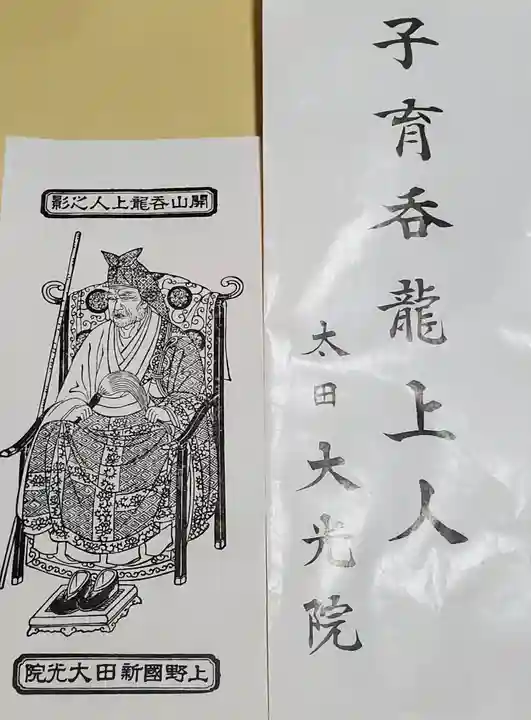 開山呑龍上人之影
上野國新田大光院
子育呑龍上人
太田大光院